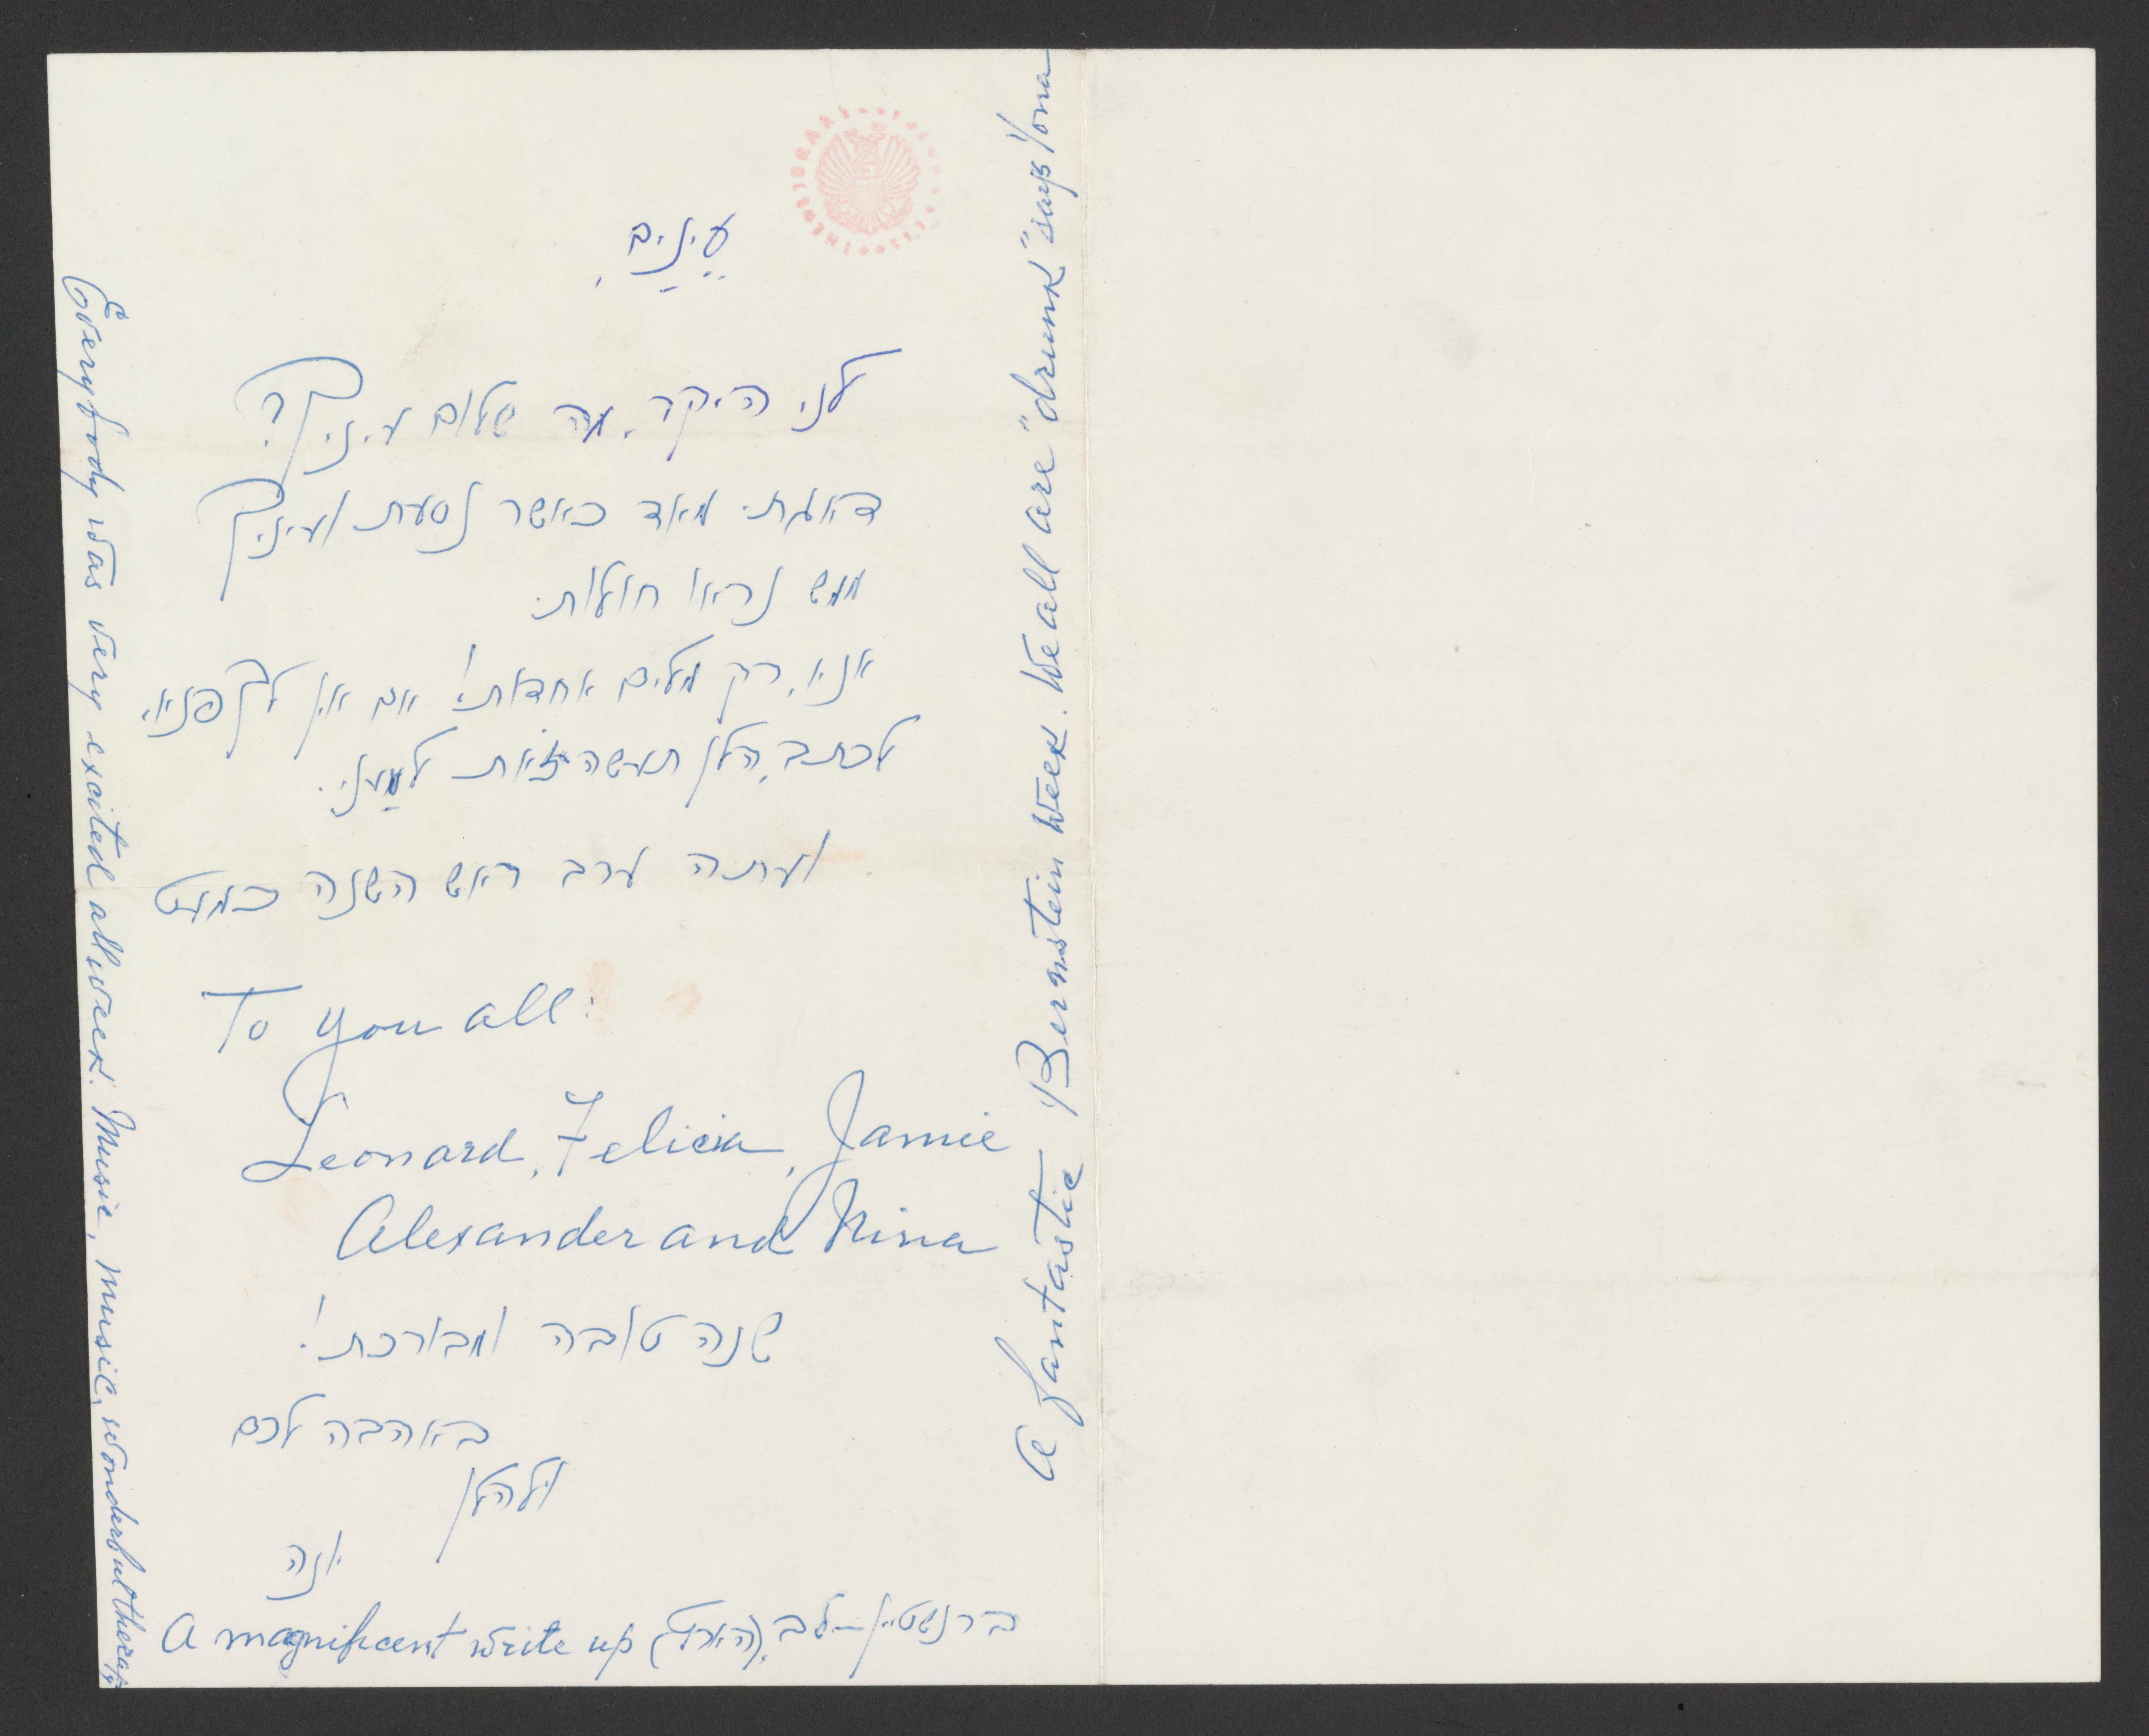 עֵינַיִם
לני היקר, מה שלום עיניך?
דאגתי מאד כאשר נסעת ועיניך
ממש נראו חולות.
אנא, רק מלים אחדות! אם אין לך פנאי
לכתב, הלן תעשה זאת למעני.
ועתה ערב ראש השנה כמעט
To you all:
Leonard, Felicia, Jamie
Alexander and Nina
שנה טובה ומבורכת!
באהבה לכם
ולהלן
יונה
A magnificent write up (הארץ), ברנשטיין—לב
A fantastic Bernstein week. We all are "drunk" says Yona
Everybody was very excited all week. Music, music, wonderful therapy